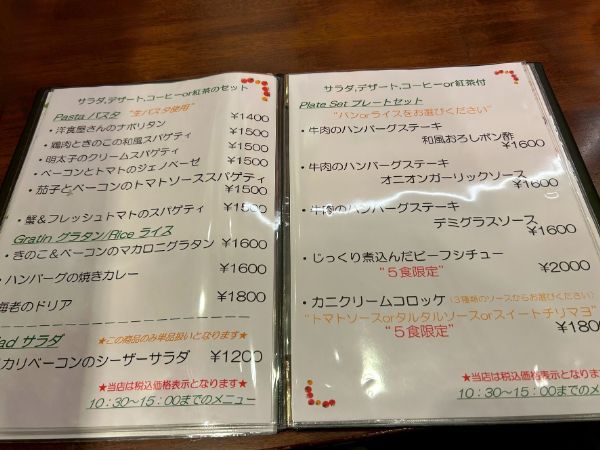 サラダ,デザート,コーヒーor紅茶のセット
Pasta パスタ "生パスタ使用"
・洋食屋さんのナポリタン ¥1400
・鶏肉ときのこの和風スパゲティ ¥1500
・明太子のクリームスパゲティ ¥1500
・ベーコンとトマトのジェノベーゼ ¥1500
・茄子とベーコンのトマトソーススパゲティ
¥1500
・蟹&フレッシュトマトのスパゲティ ¥1500
Gratin グラタン/Rice ライス
・きのこ&ベーコンのマカロニグラタン ¥1600
・ハンバーグの焼きカレー ¥1600
海老のドリア ¥1800
ad サラダ ★この商品のみ単品扱いとなります★
カリベーコンのシーザーサラダ ¥1200
★当店は税込価格表示となります★
10:30~15:00までのメニュー
サラダ,デザート,コーヒーor紅茶付
Plate Set プレートセット
"パンorライスをお選びください"
・牛肉のハンバーグステーキ
和風おろしポン酢
¥1600
・牛肉のハンバーグステーキ
オニオンガーリックソース
¥1600
・牛肉のハンバーグステーキ
デミグラスソース
¥1600
・じっくり煮込んだビーフシチュー
"5食限定" ¥2000
・カニクリームコロッケ (3種類のソースからお選びください)
"トマトソースorタルタルソースorスイートチリマヨ"
"5食限定" ¥1800
★当店は税込価格表示となります★
10:30~15:00までのメニュー